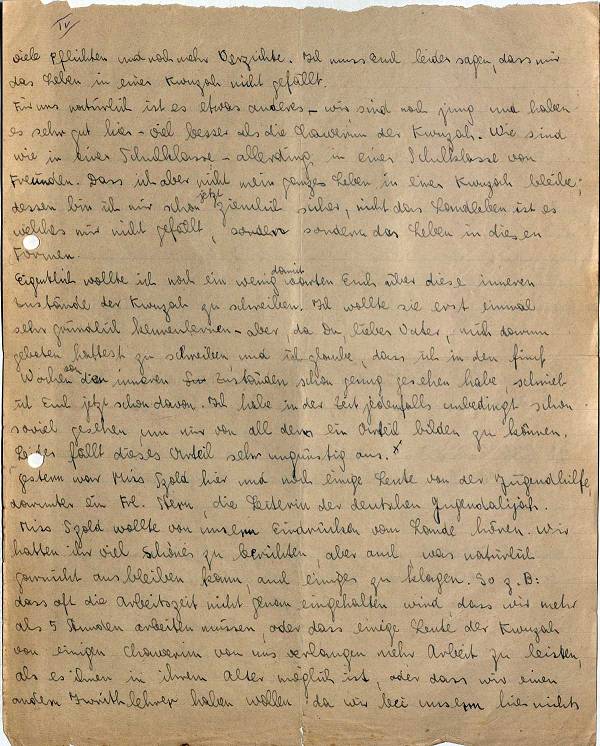 IV
viele Pflichten und noch mehr Verzichte. Ich muss Euch leider sagen, dass mir
das Leben in einer Kwuzah nicht gefällt.
Für uns natürlich ist es etwas anderes – wir sind noch jung und haben
es sehr gut hier – viel besser als die Chawerim der Kwuzah. Wir sind
wie in einer Schulklasse – allerdings in einer Schulklasse von
Freunden. Dass ich aber nicht mein ganzes Leben in einer Kwuzah bleibe,
dessen bin ich mir schon jetzt ziemlich sicher, nicht das Landleben ist es
welches mir nicht gefällt, sondern das Leben in diesen
Formen.
Eigentlich wollte ich noch ein wenig damit warten Euch über diese inneren
Zustände der Kwuzah zu schreiben. Ich wollte sie erst einmal
sehr gründlich kennenlernen – aber, da Du, lieber Vater, mich darum
gebeten hattest zu schreiben und ich glaube, dass ich in den fünf
Wochen von den inneren Zuständen schon genug gesehen habe, schrieb
ich Euch jetzt schon davon. Ich habe in der Zeit jedenfalls unbedingt schon
soviel gesehen, um mir von all dem ein Urteil bilden zu können.
Leider fällt dieses Urteil sehr ungünstig aus. x
Gestern war Miss Szold hier und noch einige Leute von der Jugendhilfe,
darunter ein Frl. Stern, die Leiterin der deutschen Jugendalijah.
Miss Szold wollte von unsern Eindrücken vom Lande hören. Wir
hatten ihr viel schönes zu berichten, aber auch, was natürlich
garnicht ausbleiben kann, auch einiges zu klagen. So z. B:
dass oft die Arbeitszeit nicht genau eingehalten wird dass wir mehr
als 5 Stunden arbeiten müssen, oder dass einige Leute der Kwuzah
von einigen Chawerim von uns verlangen mehr Arbeit zu leisten,
als es ihnen in ihrem Alter möglich ist, oder dass wir einen
andern Iwrithlehrer haben wollen da wir bei unserm hier nichts